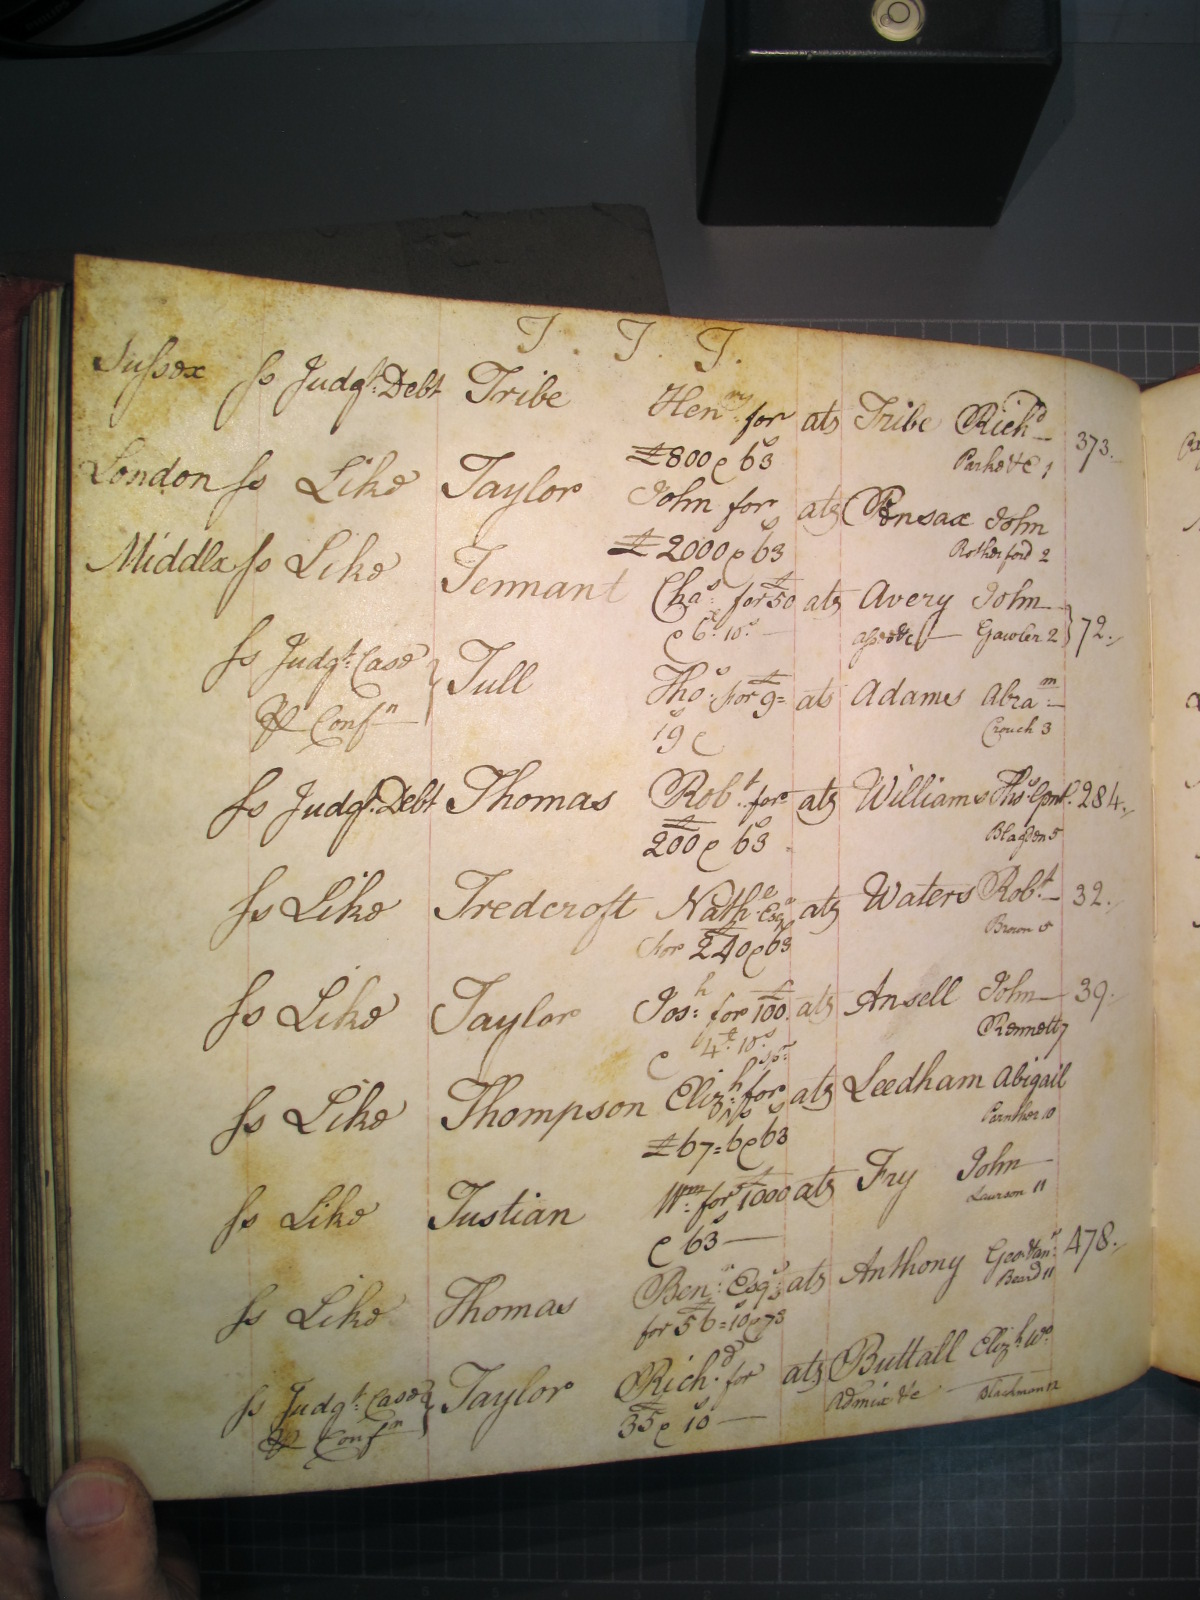 T. T. T.
Sussex ss Judgt. Debt Tribe Henry. for ats Tribe Richd 373.
£800 e 63s Parke &c 1
London ss Like Taylor John for ats Ponsax John
£2000 e 63s Rotherford 2
Middlx ss Like Tennant Chas. for £50 ats Avery John
e 6£: 10s assee &c Gawler 2 } 72.
ss Judgt. Case } Tull Thos. for £9= ats Adams Abram.
& Confn 19s e Crouch 3
ss Judgt. Debt Thomas Robt. for ats Williams Thos 284.
£200 e 63s Blagden 5
ss Like Tredcroft Nathe. Esqr ats Waters Robt 32.
for £240 e 63s Brown 5
ss Like Taylor Josh: for £100 ats Ansell John 39.
e 4£: 10s Rennett 7
ss Like Thompson Elizh. for ats Leedham Abigail
£67=6 e 63s Panther 10
ss Like Tustian Wm: for £1000 ats Fry John
e 63s Lawson 11
ss Like Thomas Benn: Esqr ats Anthony Geo 478.
for £56=10s e 73 Beard 11
ss Judgt. Case } Taylor Richd. for ats Buttall Elizh Wo
& Confn £35 e 10s Admix &c Blackmon 12